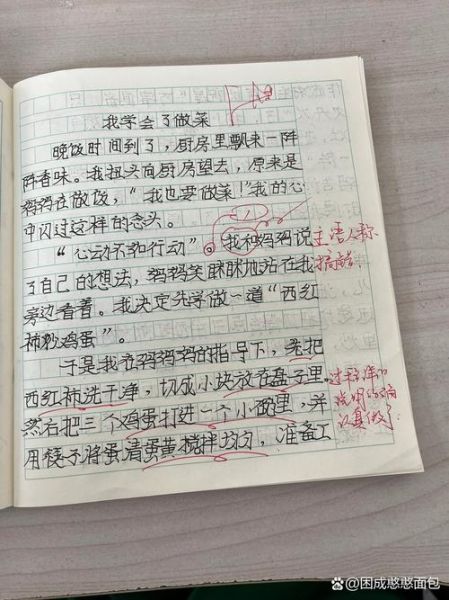 我学会了做菜
晚饭时间到了，厨房里飘来一阵
阵香味。我扭头向厨房望去，原来是
妈妈在做饭，“我也要做菜！”我的心
中闪过这样的念头。
“心动不如行动”。我和妈妈说
了自己的想法，妈妈笑眯眯地站在我
旁边看着。我决定先学做一道“西红
柿炒鸡蛋”。
于是我在妈妈妈的指导下，先把
西红柿洗干净，切成小块放在盘子里，
然后把三个鸡蛋打进一个小碗里，并
用筷子将蛋清蛋黄搅拌均匀，准备工
主语人称
搞错
过程详细
说明
认真做了
@困成憨憨面包